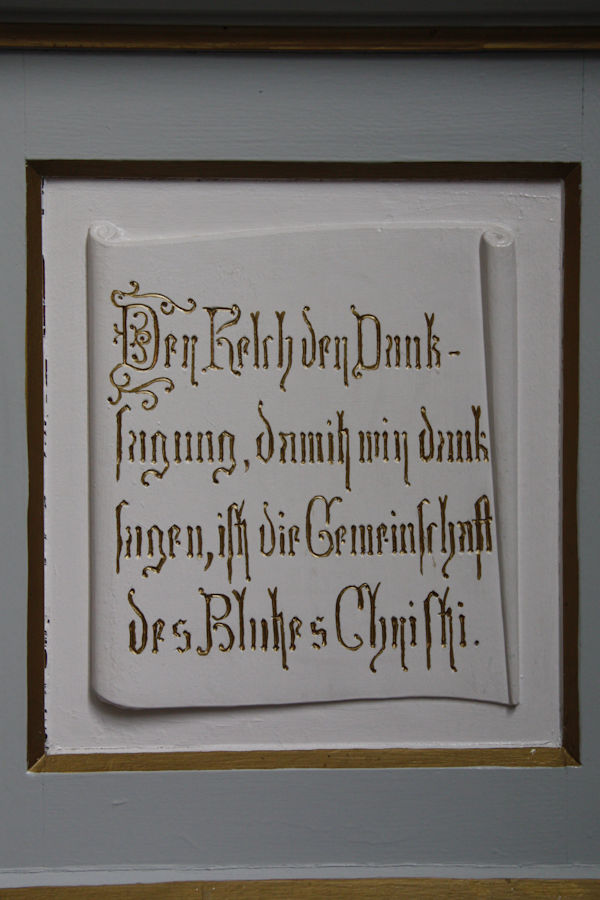 Der Kelch der Dank-
sagung, damit wir dank
sagen, ist die Gemeinschaft
des Blutes Christi.